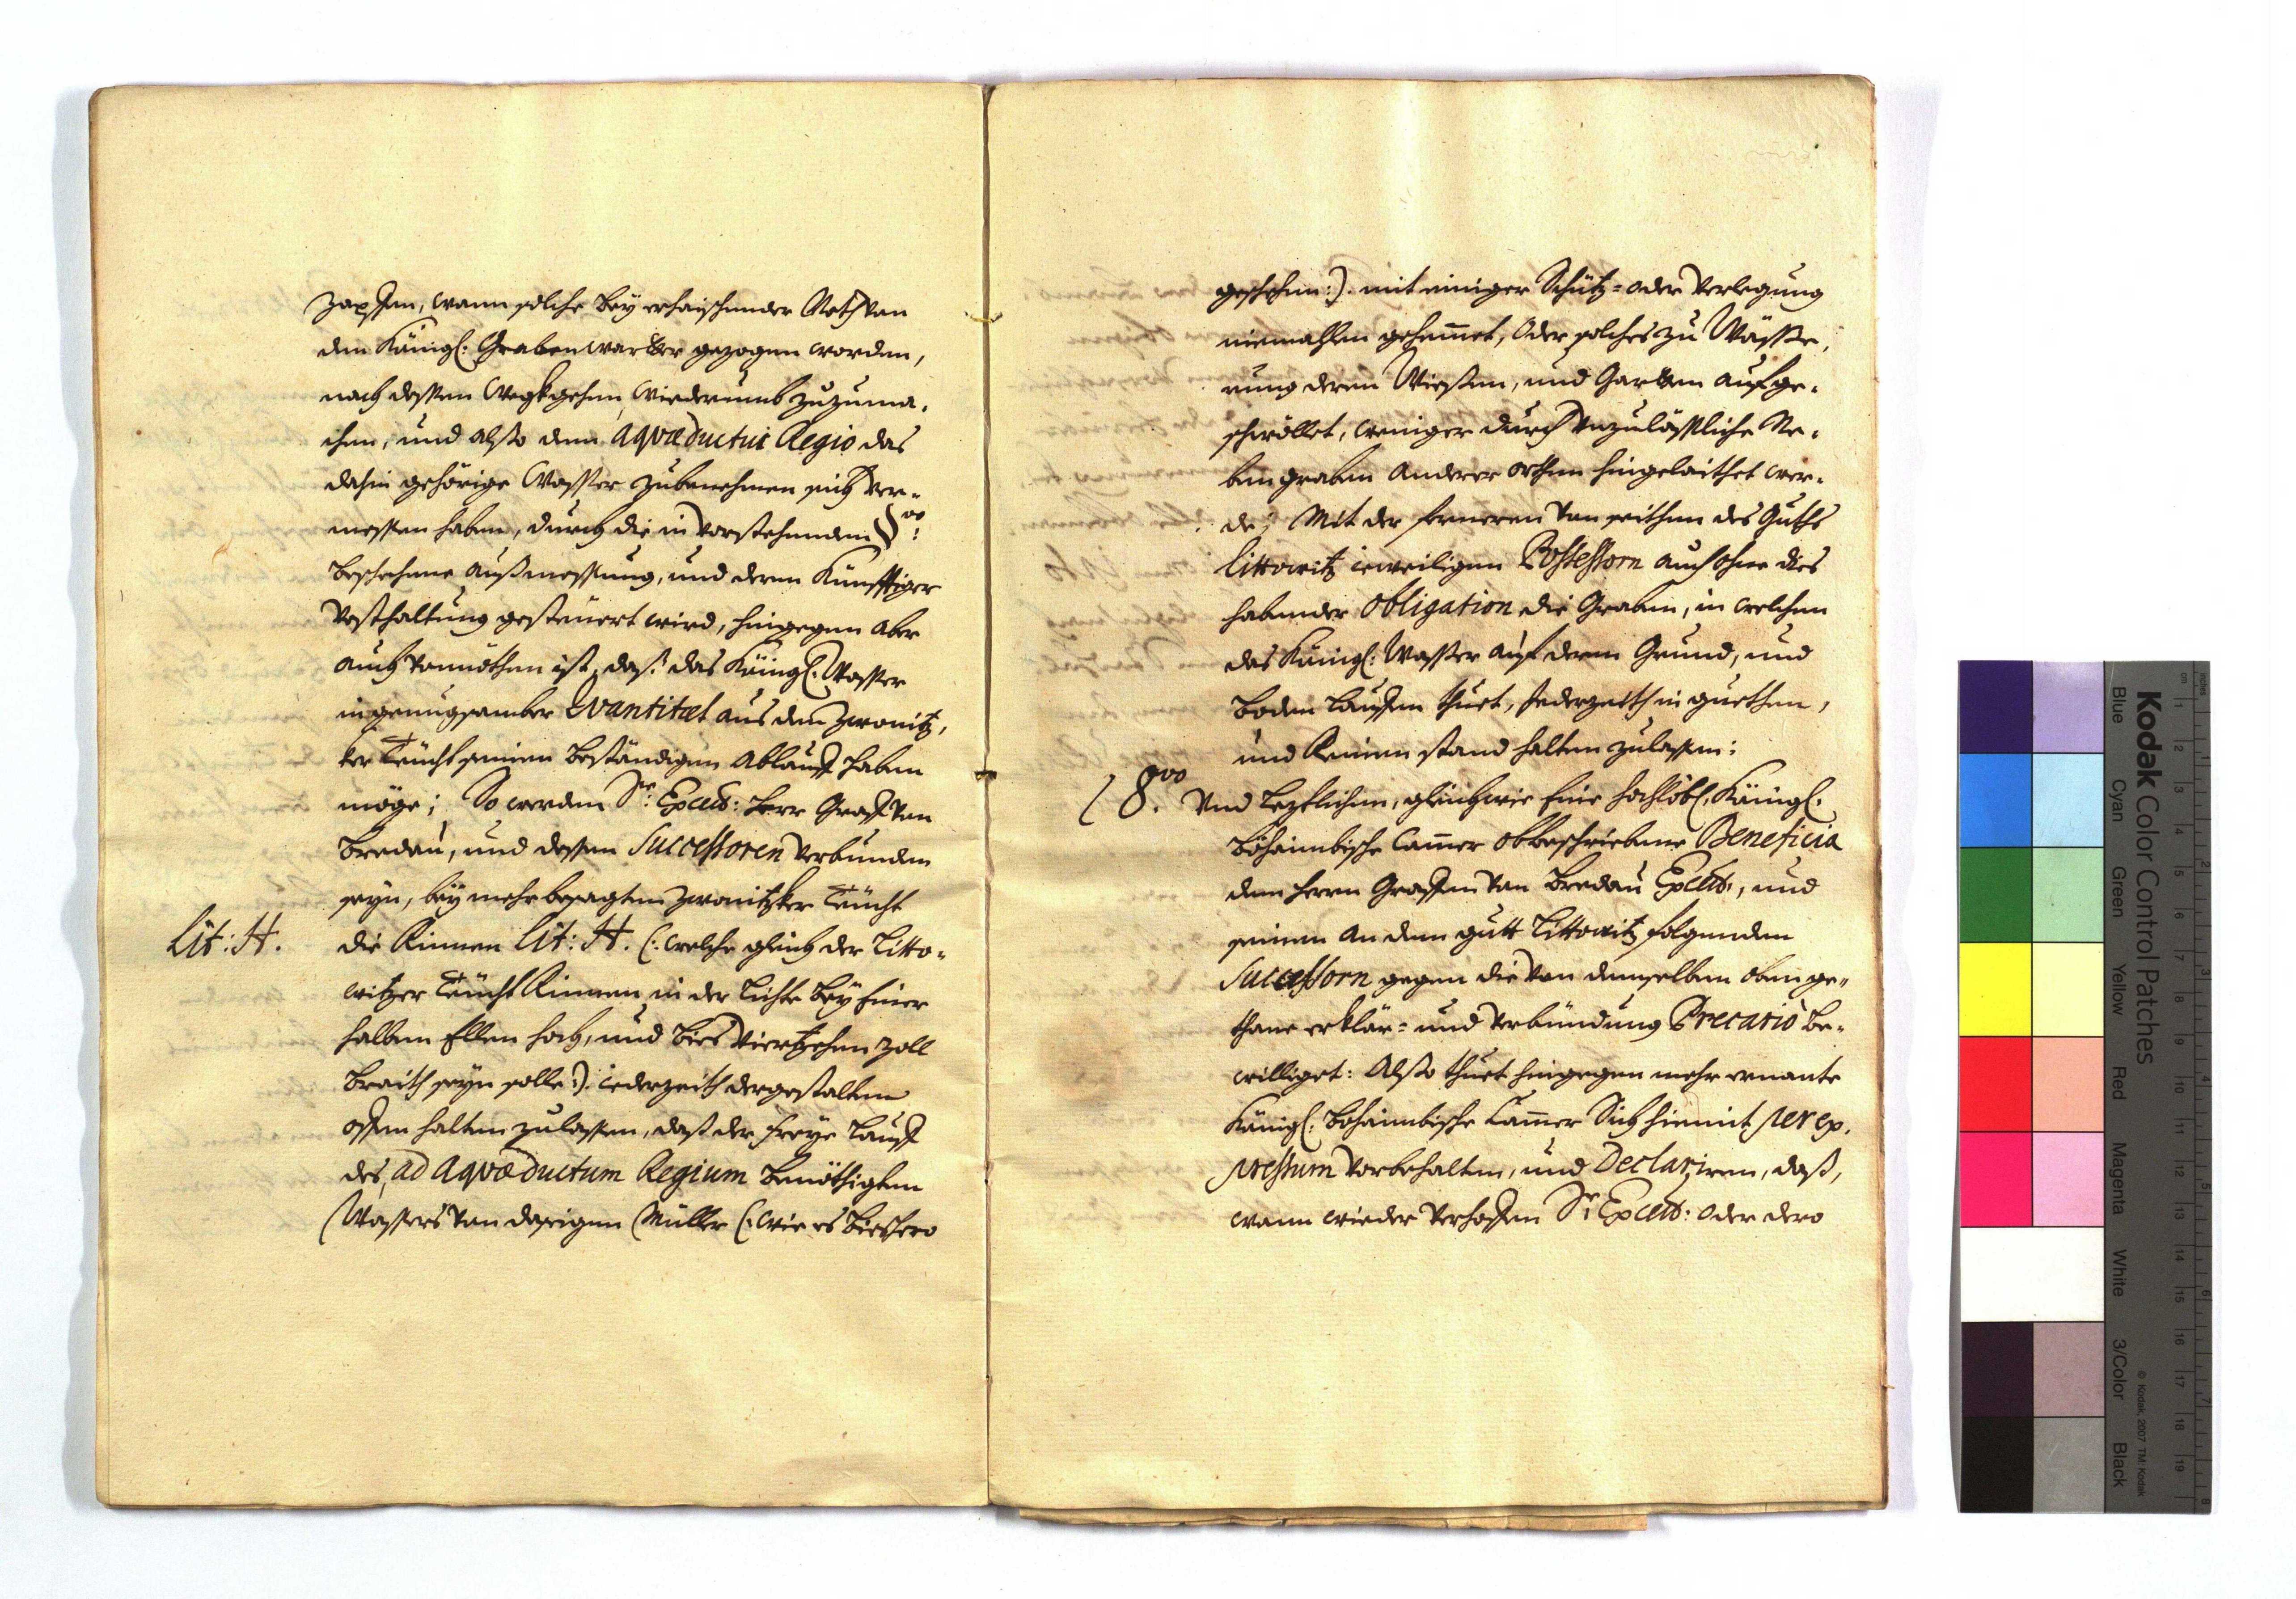 Zapffen, wann solche bey erhaischender Noth von
dem Königl: Grabenwarther gezogen worden,
nach dessen Wegkgehen, wiederumb zuzuma-
chen, und also dem Aquæductui Regio das
dahin gehörige Wasser zubenehmen sich ver-
messen haben, durch die in vorstehenden §vo:
beschehene Außmessung, und deren Künfftiger
Vesthaltung gesteuert wird, hingegen aber
auch vonnöthen ist, daß das Königl: Wasser
in genugsamber Quantitæt aus dem Zwonitz,
ker Teücht seinen beständigen Ablauff haben
möge; So werden Sr: Excell: Herr Graff von
Bredau, und dessen Successoren verbunden
seyn, bey mehrbesagten Zwonitzker Teücht
Lit: H. die Rinnen Lit: H. (: welche gleich der Litto-
witzer Teücht Rinnen, in der Lichte bey Einer
halben Ellen hoch, und bies Viertzehen Zoll
braith seyn solle:). iederzeith dergestalten
offen halten zulassen, daß der freye Lauff
des, ad Aquæductum Regium benöthigten
Wassers von dasigen Müller (: wie es bieshero
geschehen:). mit einiger Schütz- oder Verlegung
niemahlen gehemmet, oder solches zu Wässe-
rung deren Wiesen, und Garthen aufge-
schwöllet, weniger durch unzulässliche Ne-
bengraben anderer orthen hingeleithet wer-
de; Mit der ferneren von seithen des Guths
Littowitz ieweiligen Possessorn auch ohne dies
habender Obligation die Graben, in welchen
das Königl: Wasser auf deren Grund, und
Boden lauffen thuet, Jederzeith in guethen,
und Reinen stand halten zulassen:
8.vo Und letzlichen, gleichwie Eine hochlöbl: Königl:
Böhaimbische Cammer obbeschriebene Beneficia
dem Herrn Graffen von Bredau Excell:, und
seinen an dem gutt Littowitz folgenden
Successorn gegen die von demselben oben ge-
thane erklär- und Verbündung Precario be-
williget: Also thuet hingegen mehr ernante
Königl: Böhaimbische Cammer Sich hiemit per ex-
pressum vorbehalten, und Declariren, daß,
wann wieder verhoffen Sr: Excell: oder dero
Kodak Color Control Patches
Blue
Cyan
Green
Yellow
Red
Magenta
White
3/Color
Black
© Kodak, 2007 TM: Kodak